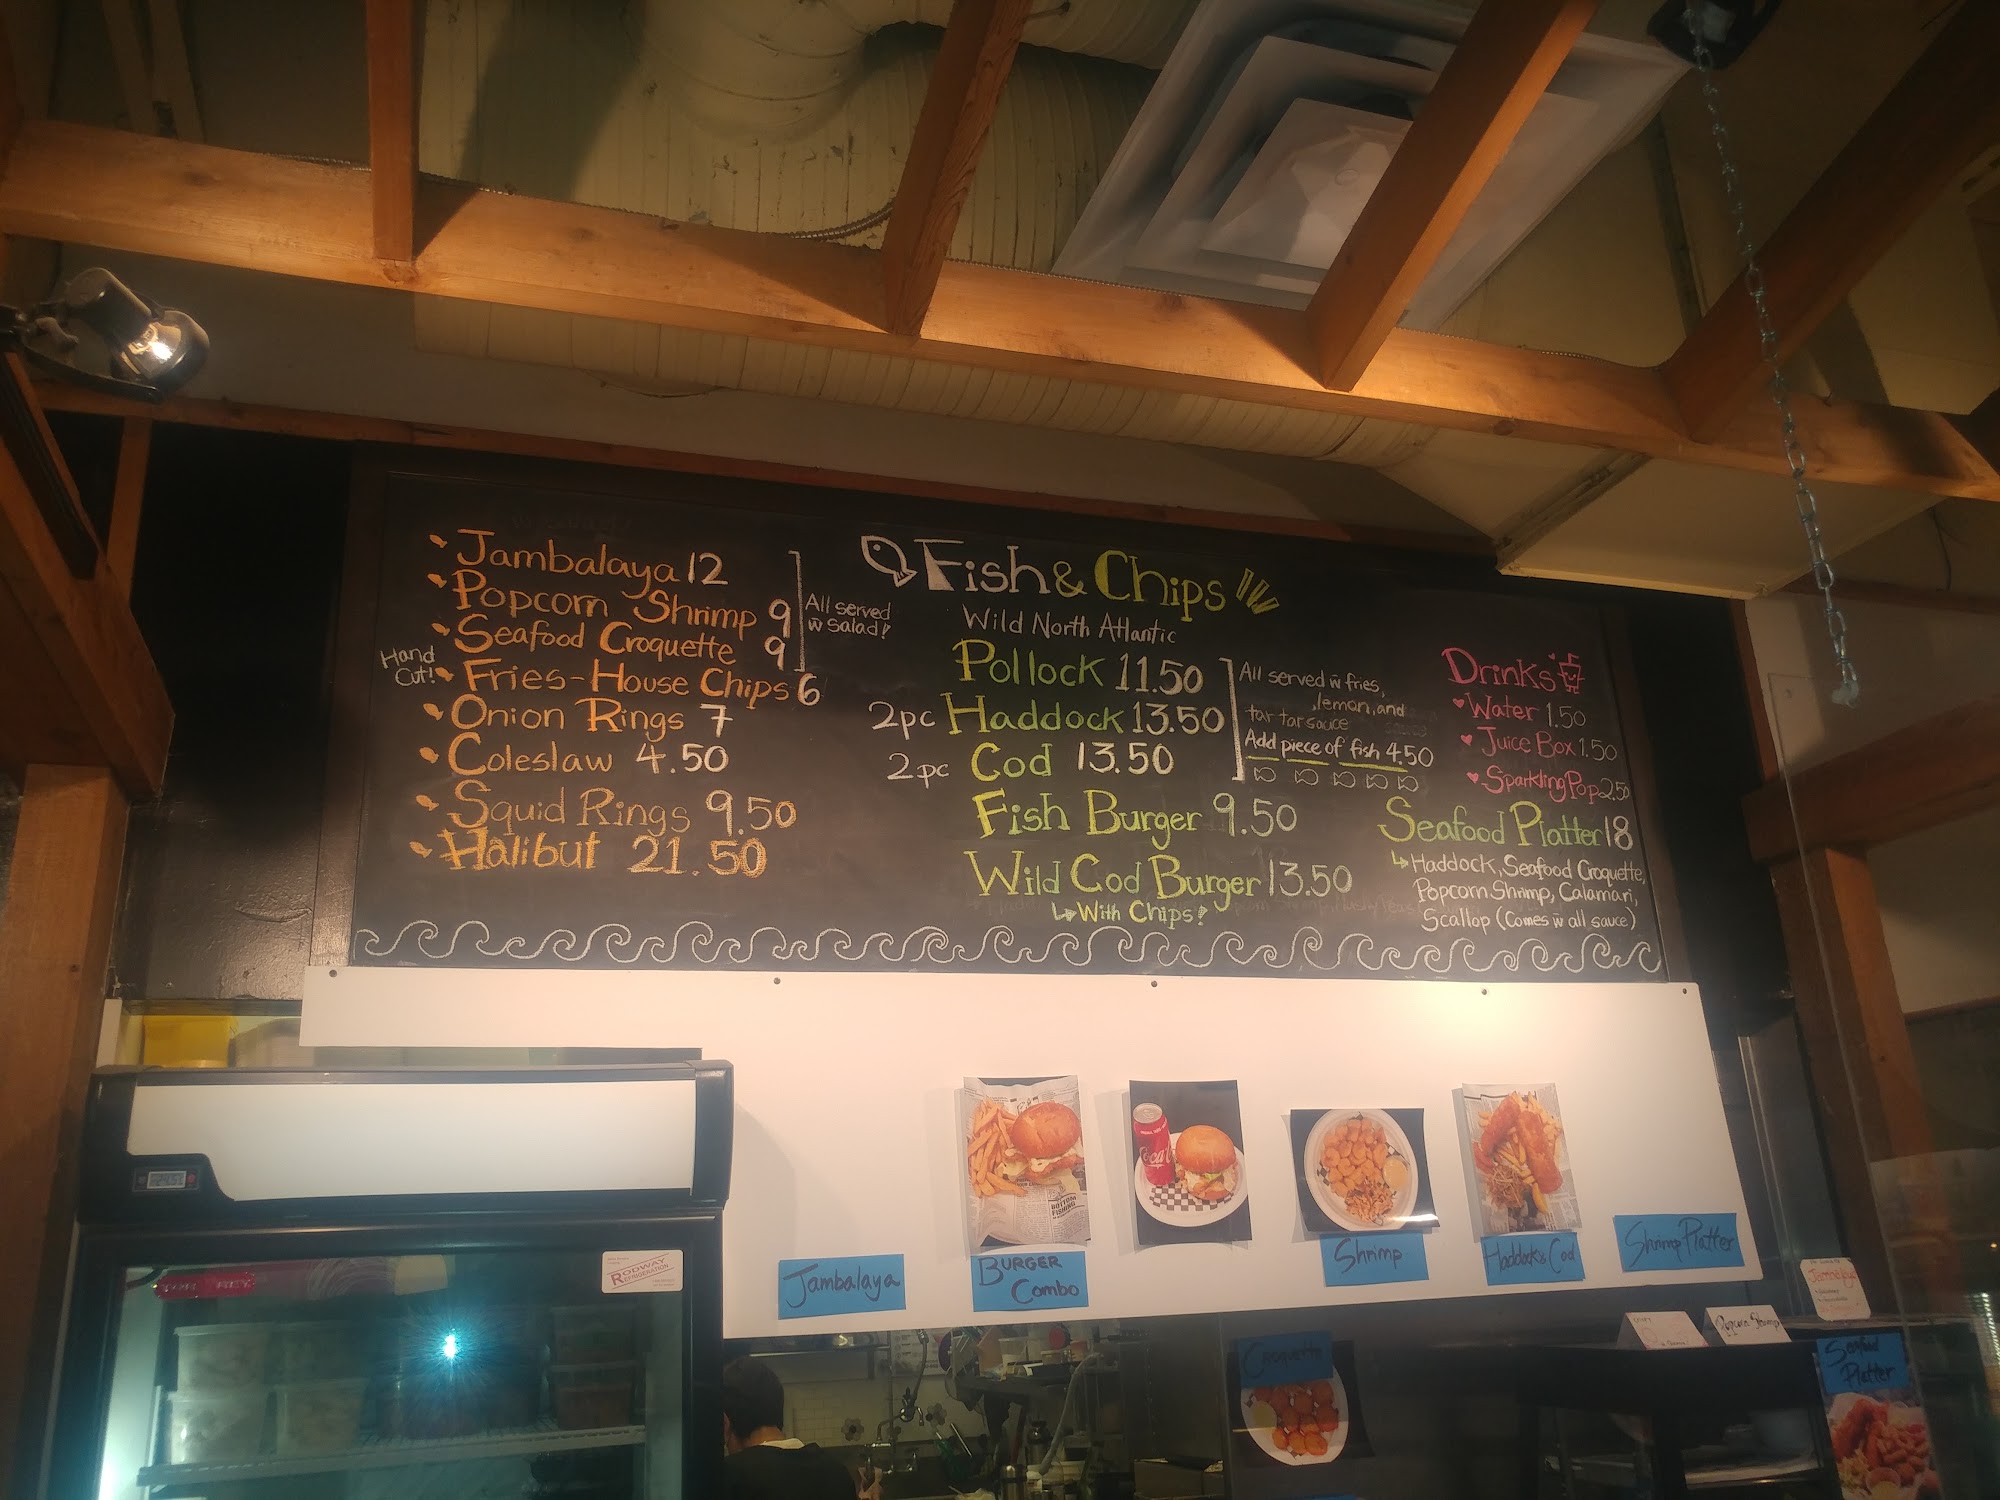 Jambalaya 12
Popcorn Shrimp 9
Seafood Croquette 9
All served
w̄ Salad!
Hand
Cut!
Fries-House Chips 6
Onion Rings 7
Coleslaw 4.50
Squid Rings 9.50
Halibut 21.50
Fish & Chips
Wild North Atlantic
Pollock 11.50
2pc Haddock 13.50
2pc Cod 13.50
All served w̄ fries,
lemon, and
tartar sauce
Add piece of fish 4.50
Fish Burger 9.50
Wild Cod Burger 13.50
With Chips!
Drinks
Water 1.50
Juice Box 1.50
Sparkling Pop 2.50
Seafood Platter 18
Haddock, Seafood Croquette,
Popcorn Shrimp, Calamari,
Scallop (Comes w̄ all sauce)
Jambalaya
BURGER
Combo
Shrimp
Haddock & Cod
Shrimp Platter
RODWAY
REFRIGERATION
BOTTOM
FISHING
Croquette
Popcorn Shrimp
Jambalaya
Seafood
Platter